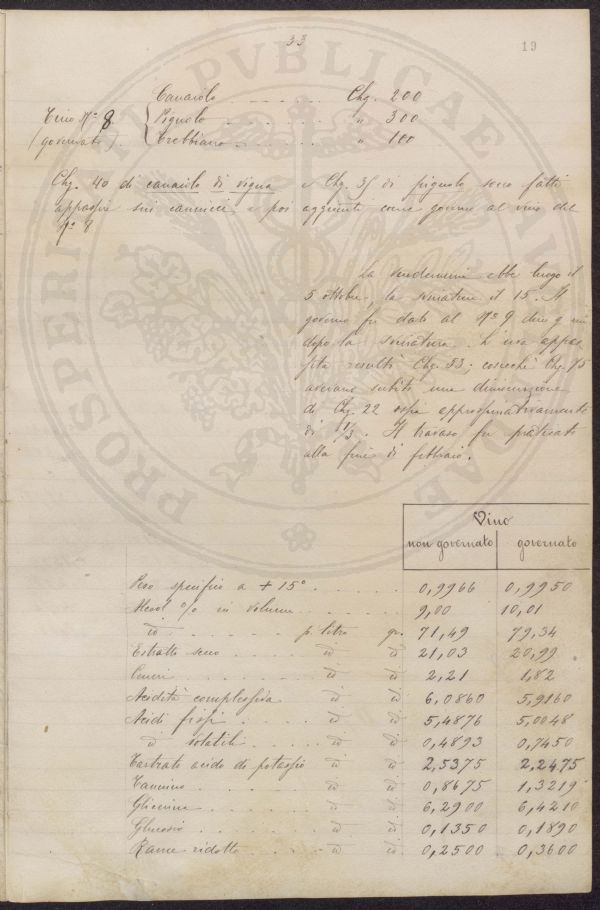 33
19
PROSPERITATI PVBLICAE AVGENDAE
Canaiolo . . . . Chg. 200
Tino Nº 8 Pignolo . . . . " 300
(governato). Trebbiano . . . . " 100
Chg. 40 di canaiolo di vigna e Chg. 35 di pignolo sono fatti
appassire sui cannicci e poi aggiunti come governo al vino del
Nº 8
La vendemmia ebbe luogo il
5 ottobre. la svinatura il 15. Il
governo fu dato al Nº 9
dopo la svinatura. L'uva appas
sita resultò Chg. 53; cosicchè Chg. 75
avevano subito una diminuzione
di Chg. 22 ossia approssimativamente
di 1/3. Il travaso fu praticato
alla fine di febbraio.
Vino
non governato governato
Peso specifico a + 15° . . . . . 0,9966 0,9950
Alcool % in volume . . . . . 9,00 10,01
id . . . . . p. litro gr. 71,49 79,34
Estratto secco . . . . id id 21,03 20,99
Ceneri . . . . . id id 2,21 1,82
Acidità complessiva id id 6,0860 5,9160
Acidi fissi . . . . id id 5,4876 5,0048
id volatili . . . . id id 0,4893 0,7450
Tartrato acido di potassio id id 2,5375 2,2475
Tannino . . . . . id id 0,8675 1,3219
Glicerina . . . . . id id 6,2900 6,4210
Glucosio . . . . . id id 0,1350 0,1890
Rame ridotto . . . . id id 0,2500 0,3600